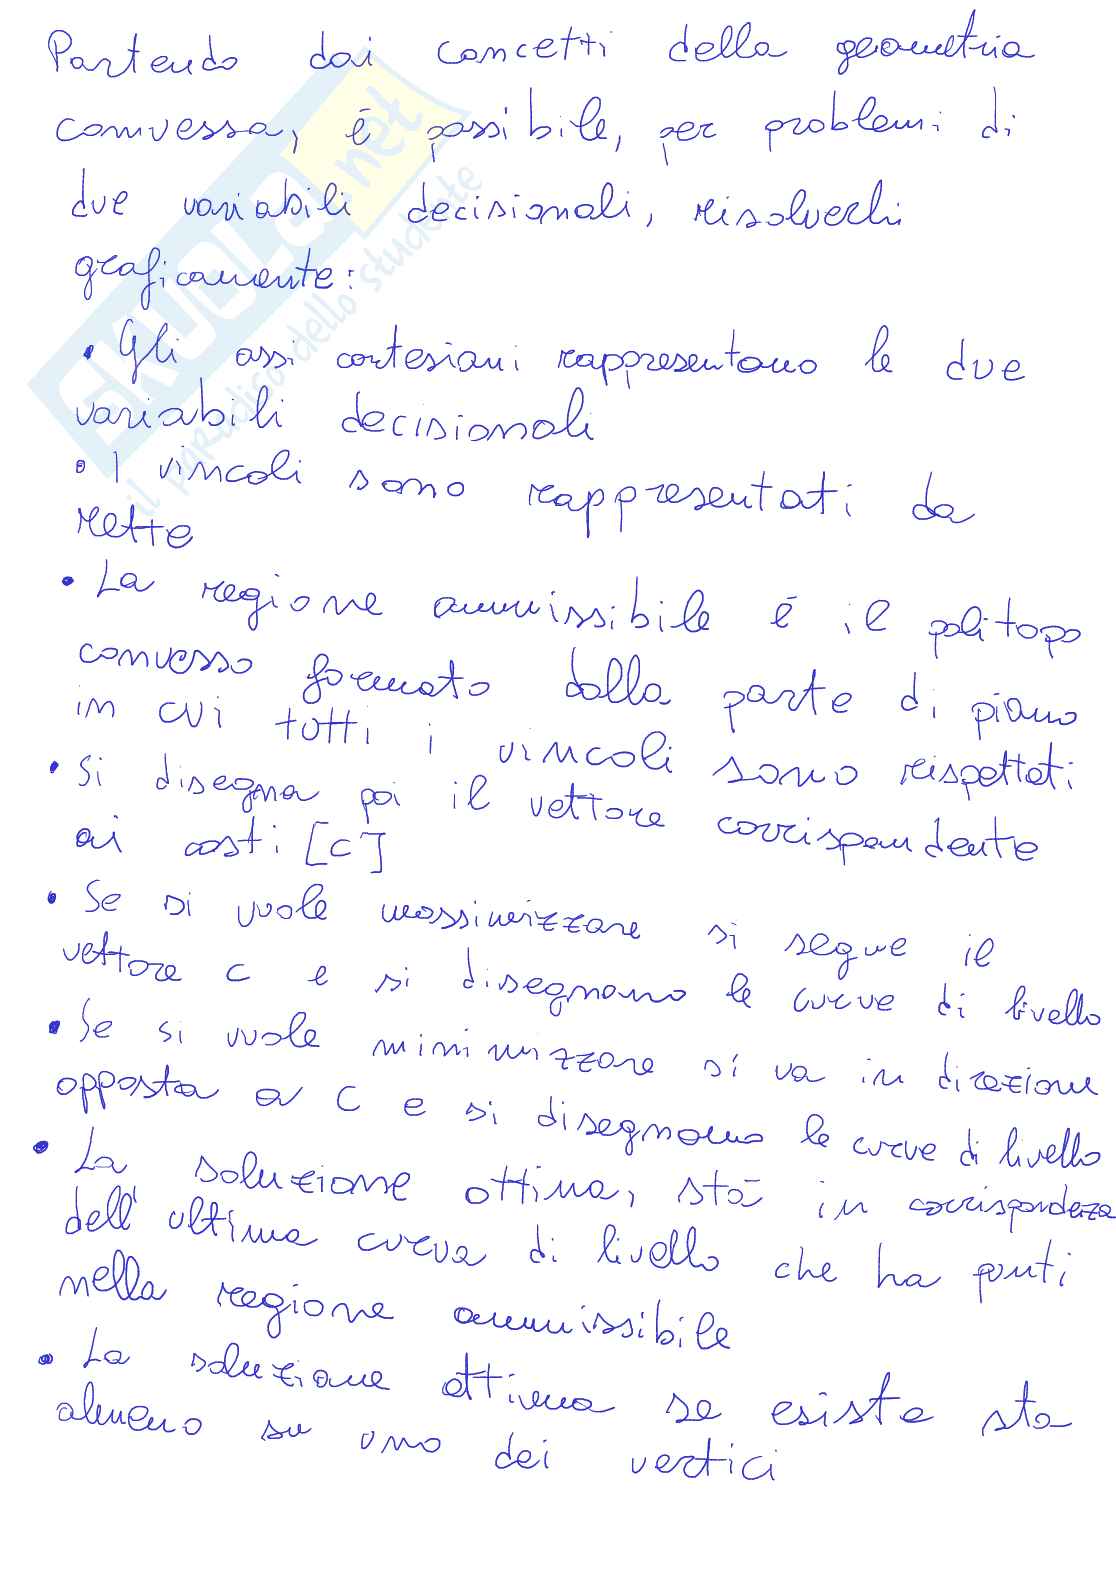 Partendo dai concetti della geometria
convessa, é possibile, per problemi di
due variabili decisionali, risolverli
graficamente:
• Gli assi cartesiani rappresentano le due
variabili decisionali
• I vincoli sono rappresentati da
rette
• La regione ammissibile é il politopo
convesso formato dalla parte di piano
in cui tutti i vincoli sono rispettati
• Si disegna poi il vettore corrispondente
ai costi [c]
• Se si vuole massimizzare si segue il
vettore c e si disegnano le curve di livello
• Se si vuole minimizzare si va in direzione
opposta a c e si disegnano le curve di livello
• La soluzione ottima, stà in corrispondeza
dell'ultima curva di livello che ha punti
nella regione ammissibile
• La soluzione ottima se esiste sta
almeno su uno dei vertici
SKUOLA.net
il paradiso dello studente